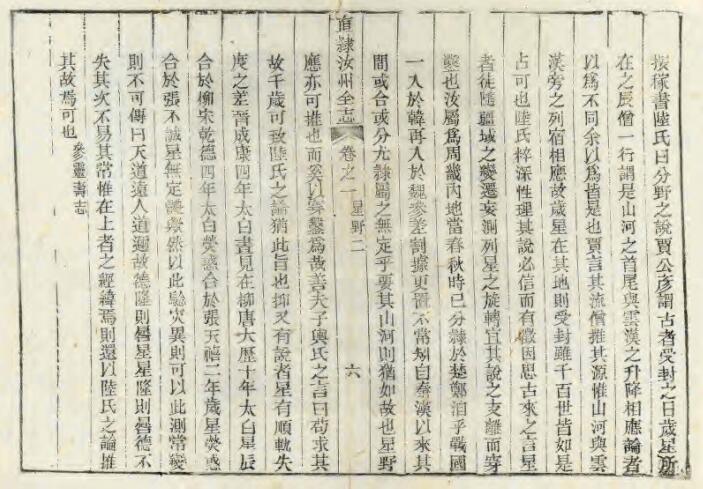 按稼書陸氏曰分野之說賈公彥謂古者受封之日歲星所
在之辰僧一行謂是山河之首尾與雲漢之升降相應論者
以爲不同余以爲皆是也賈言其流僧推其源惟山河與雲
漢旁之列宿相應故歲星在其地則受封雖千百世皆如是
占可也陸氏粹深性理其說必信而有徵因思古來之言星
者徒隨疆域之變遷妄測列星之旋轉宜其說之支離而穿
鑿也汝屬爲周畿內地當春秋時已分隸於楚鄭洎乎戰國
一入於韓再入於魏參差割據更置不常矧自秦漢以來其
間或合或分尤隸屬之無定乎要其山河則猶如故也星野
直隸汝州全志
卷之一
星野二
六
應亦可推也而奚以穿鑿爲哉善夫子輿氏之言曰苟求其
故千歲可致陸氏之論猶此旨也抑又有說者星有順軌失
度之差晉咸康四年太白晝見在柳唐大歷十年太白星辰
合於柳宋乾德四年太白熒惑合於張天禧二年歲星熒惑
合於張不誠星無定歟然以此驗災異則可以此測常變
則不可傳曰天道遠人道邇故德隆則晷星星隆則晷德不
失其次不易其常惟在上者之經緯焉則還以陸氏之論推
其故焉可也
參靈壽志